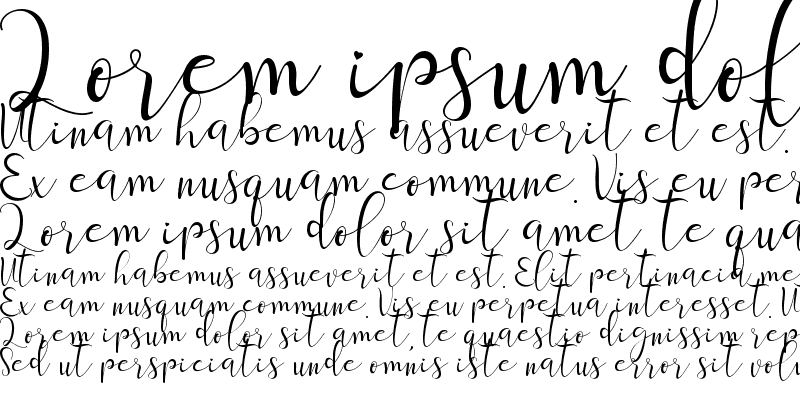 Lorem ipsum dol
Utinam habemus assueverit et est.
Ex eam nusquam commune. Vis eu per
Lorem ipsum dolor sit amet, te qua
Utinam habemus assueverit et est. Elit pertinacia me
Ex eam nusquam commune. Vis eu perpetua interesset. U
Lorem ipsum dolor sit amet, te quaestio dignissim rep
Sed ut perspiciatis unde omnis iste natus error sit volu